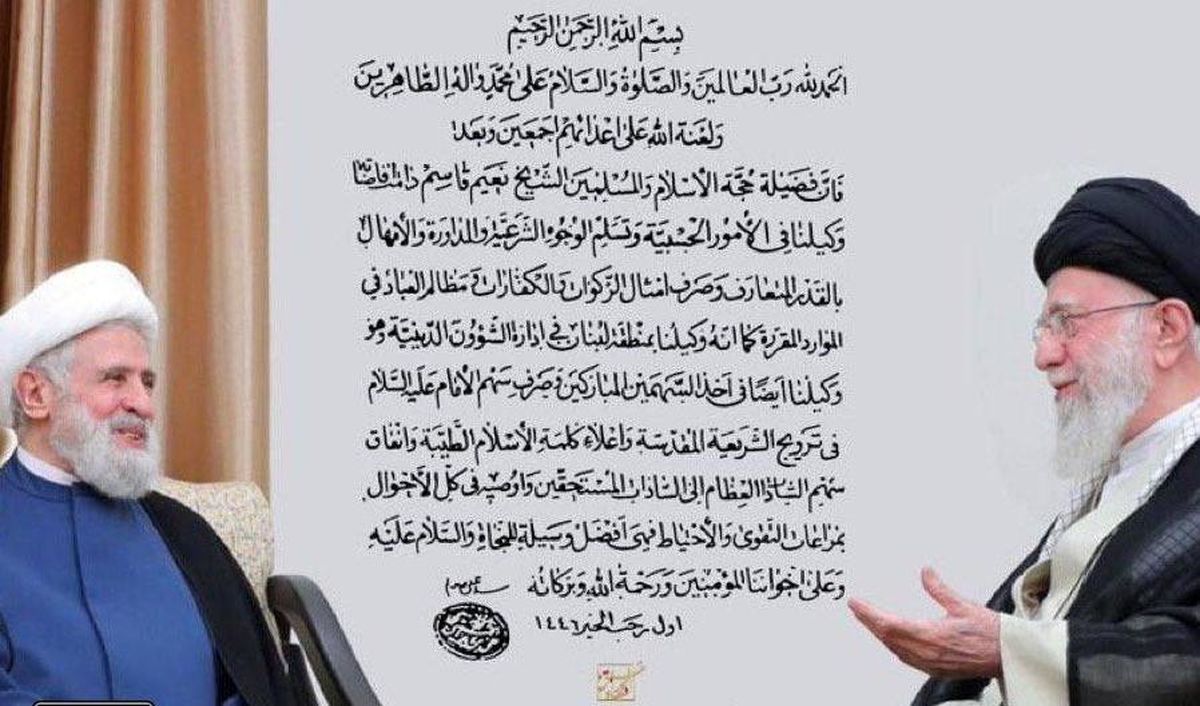 بِسْمِ اللهِ الرَّحْمنِ الرَّحيمِ
الحمدلله رَبّ العالمينَ وَالصَّلوةُ وَالسَّلامُ عَلىٰ مُحَمَّدٍ وَالِهِ الطّاهِرينَ
وَلَعْنَةُ اللهِ عَلىٰ اعْدائِهِمْ اجْمَعينَ وَبَعْدُ
فَاِنَّ فَضيلَةَ حُجَّةِ الاِسْلامِ وَالمُسْلِمينَ الشَّيْخِ نَعيم قاسِم دامَتْ افاضاتُهُ
وَكيلُنا فِى الاُمُورِ الحِسْبِيَّةِ وَتَسَلُّمِ الوُجُوهِ الشَّرْعِيَّةِ وَالمُداوَرَةِ وَالاِمْهالِ
بِالقَدْرِ المُتَعارَفِ وَصَرْفِ امْثالِ الزَّكَواتِ وَالكَفّاراتِ وَمَظالِمِ العِبادِ فى
المَوارِدِ المُقَرَّرَةِ كَما انَّهُ وَكيلُنا بِمِنْطَقَةِ لُبْنانَ فى اِدارَةِ الشُّؤُونِ الدّينِيَّةِ وَهُوَ
وَكيلُنا ايْضًا فى اَخْذِ السَّهْمَيْنِ المُبارَكَيْنِ وَصَرْفِ سَهْمِ الاِمامِ عَلَيْهِ السَّلام
فى تَرْويجِ الشَّريعَةِ المُقَدَّسَةِ وَاِعْلاءِ كَلِمَةِ الاِسْلامِ الطَّيِّبَةِ وَاِنْفاقِ
سَهْمِ السّادَةِ العِظامِ اِلَى السّاداتِ المُسْتَحِقّينَ وَاُوصيهِ فى كُلِّ الاَحْوالِ
بِمُراعاتِ التَّقْوىٰ وَالاِحْتِياطِ فَهِىَ اَفْضَلُ وَسيلَةٍ لِلنَّجاةِ وَالسَّلامُ عَلَيْهِ
وَعَلىٰ اِخْوانِنَا المُؤْمِنينَ وَرَحْمَةُ اللهِ وَبَرَكاتُهُ
اول رجب الخير ١٤٤٦